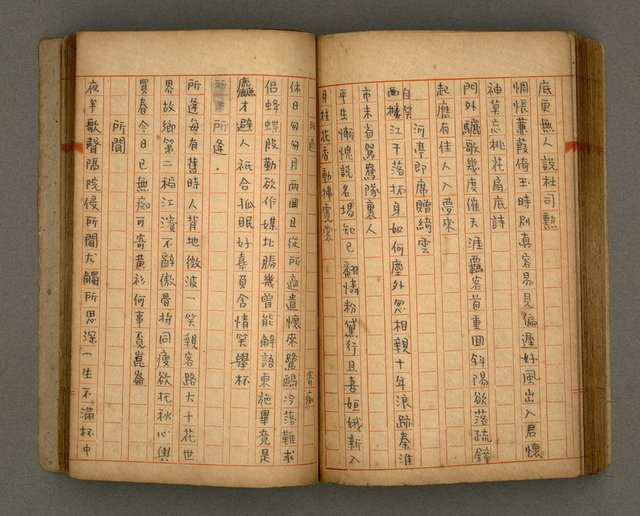 底更無人說杜司勲
惆悵蒹葭倚玉時別真容易見偏遲好風出入君懷
神莫忘桃花扇底詩
門外驪歌幾度催天涯覊客首重回斜陽欲落疏鐘
起應有佳人入夢來
河亭即席贈綺雲
自笑江干落拓身如何塵外忽相親十年浪跡秦淮
西樓
市未有鴛鴦隊裏人
平生慚愧說名場知已翻憐粉黛行且喜姮娥新入
月桂花香動掃霓裳
所適
休日匆匆月兩回且從所適遣懷來鷺鷗冷落難求
侶蜂蝶殷勤欲作媒北勝幾曾能解語東施畢竟是
麤才避人祇合孤眠好辜負含情笑舉杯
所逢
所逢每有舊時人背地微波一笑親客路大千花世
界故鄉第二福江濱不辭傲骨拚同瘦欲托秋心與
買春今日已無痴可寄黄衫何事覓崑崙
所聞
夜半歌聲隔院侵所聞尤觸所思深一生不滿杯中